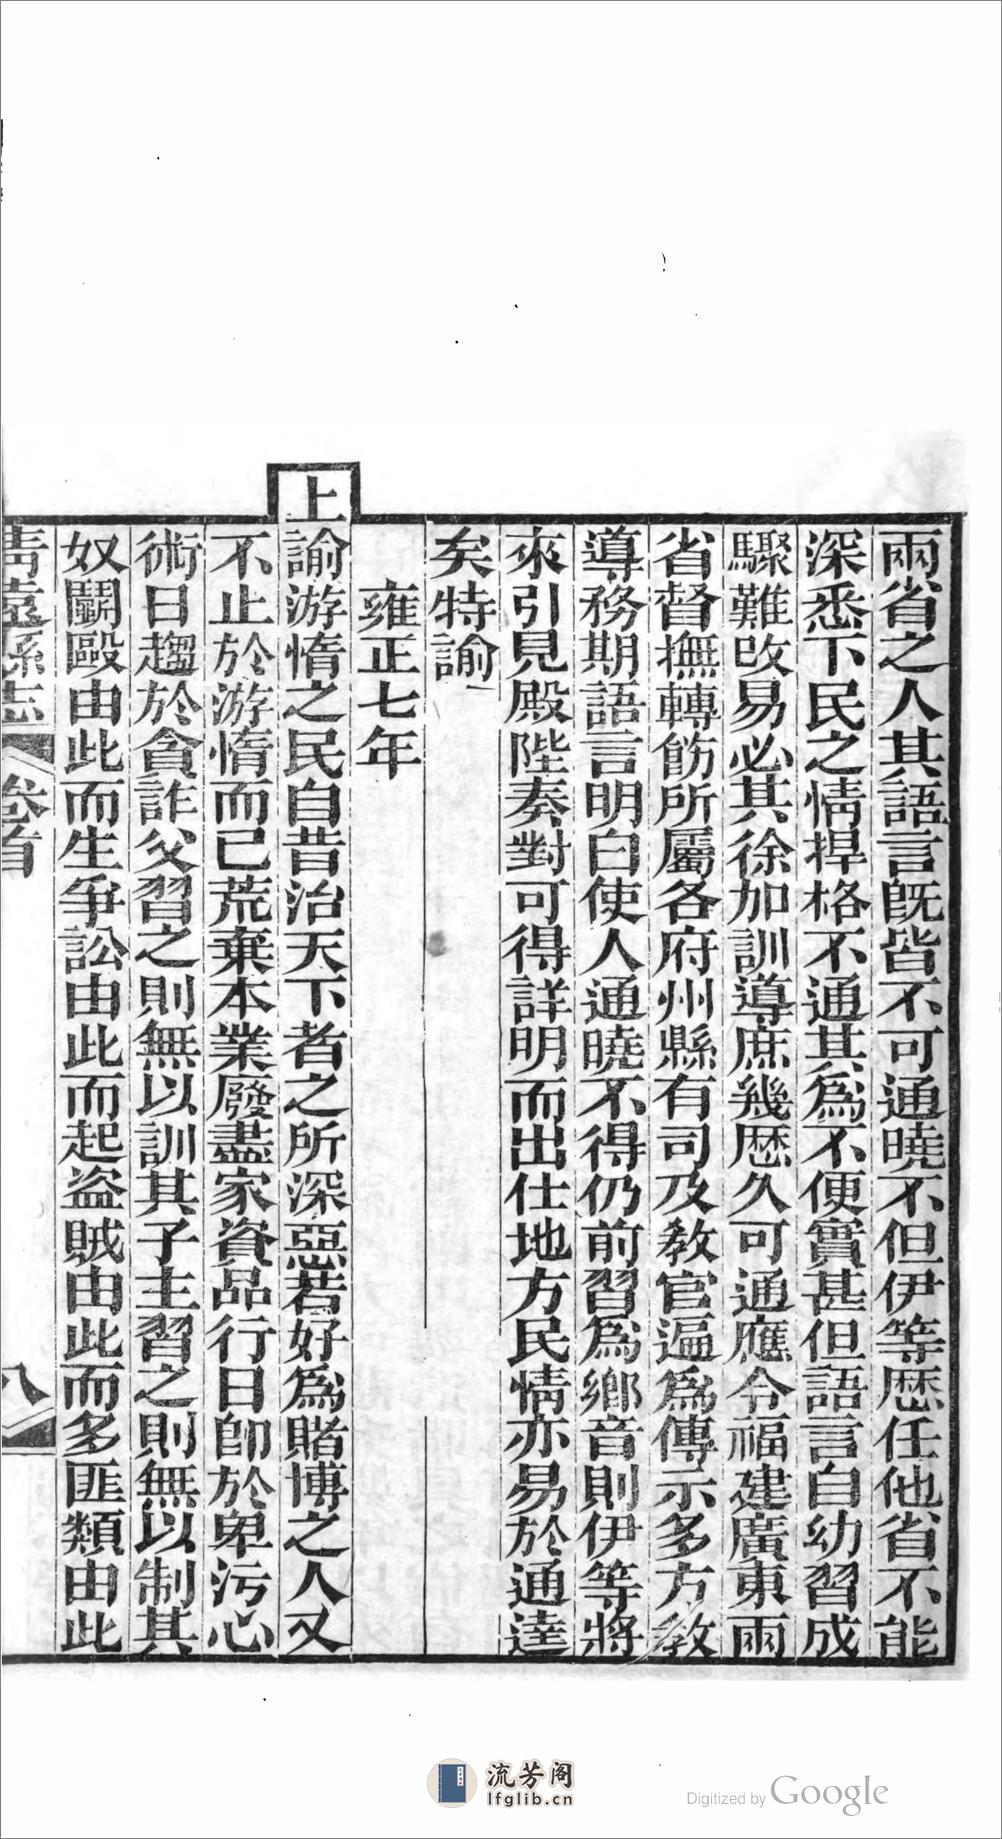 兩省之人其語言旣皆不可通曉不但伊等歷任他省不能
深悉下民之情捍格不通其爲不便實甚但語言自幼習成
驟難改易必其徐加訓導庶幾歷久可通應令福建廣東兩
省督撫轉飭所屬各府州縣有司及敎官遍爲傳示多方敎
導務期語言明白使人通曉不得仍前習爲鄉音則伊等將
來引見殿陛奏對可得詳明而出仕地方民情亦易於通達
矣特諭
雍正七年
上諭游惰之民自昔治天下者之所深惡若好爲賭博之人又
不止於游惰而已荒棄本業廢盡家資品行日卽於卑污心
術日趨於貪詐父習之則無以訓其子主習之則無以制其
奴鬭毆由此而生爭訟由此而起盜賊由此而多匪類由此
淸遠縣志 卷首 八
流芳阁
lfglib.cn
Digitized by Google